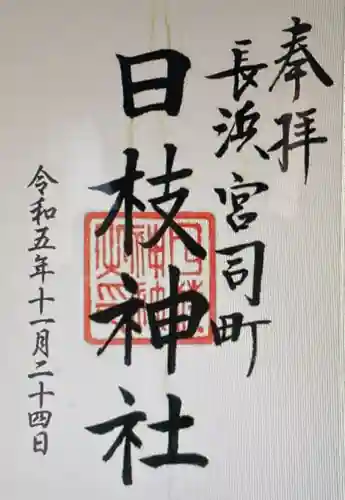 奉拝
長浜宮司町
日枝神社
令和五年十一月二十四日